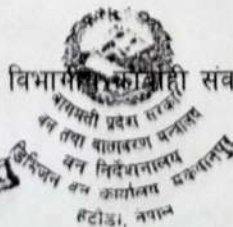 विभागीय कार्वाही संव
बागमती प्रदेश सरकार
वन तथा वातावरण मन्त्रालय
वन निर्देशनालय
डिभिजन वन कार्यालय मकवानपुर
हेटौंडा, नेपाल